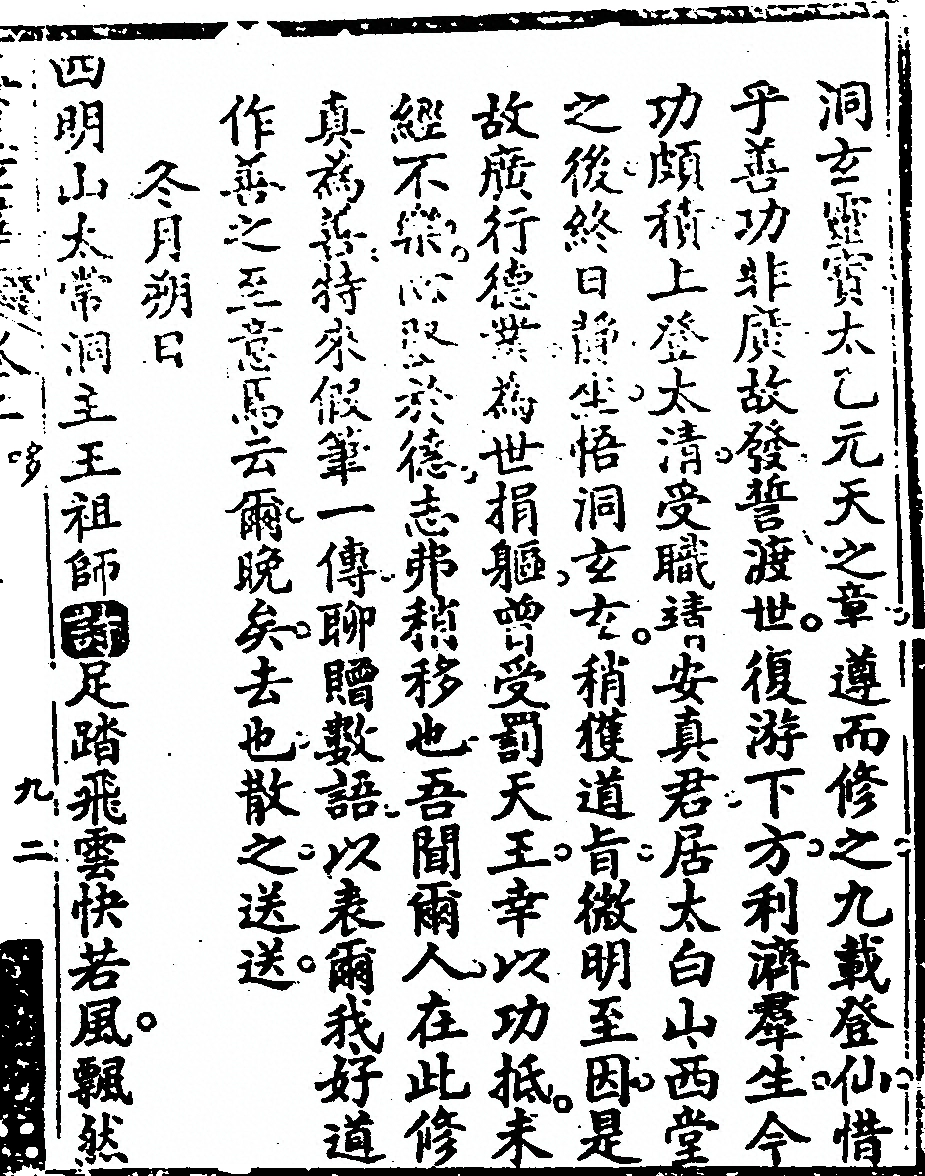 洞玄靈寳太乙元天之章遵而修之九載登仙惜
乎善功非廣故發誓渡世復游下方利濟羣生今
功頗積上登太清受職靖安真君居太白山西堂
之後終日静坐悟洞玄玄稍獲道旨微明至因是
故廣行德業為世捐軀曾受罰天王幸以功抵未
經不樂心堅於德志弗稍移也吾聞爾人在此修
真為善特來假筆一傳聊贈數語以表爾我好道
作善之至意焉云爾晚矣去也散之送送
冬月朔日
四明山太常洞主王祖師詩足踏飛雲快若風飄然
九二